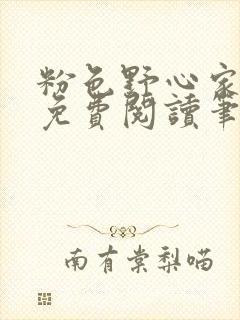 粉色野心家
免费閱讀筆
南有棠梨喵